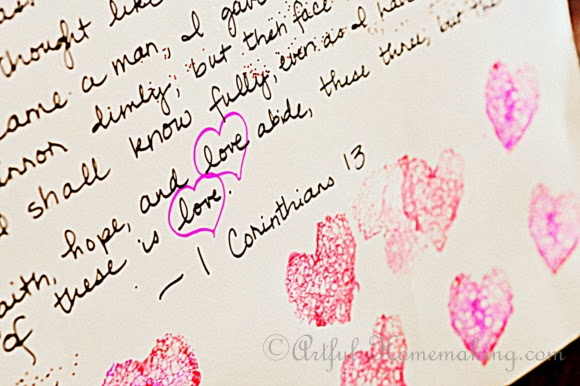 thought like
came a man, I gave
dimly; but then face
shall know fully, even as I have
faith, hope, and love abide, these three; but the
of these is love.
~ 1 Corinthians 13
©ArtfulHomemaking.com